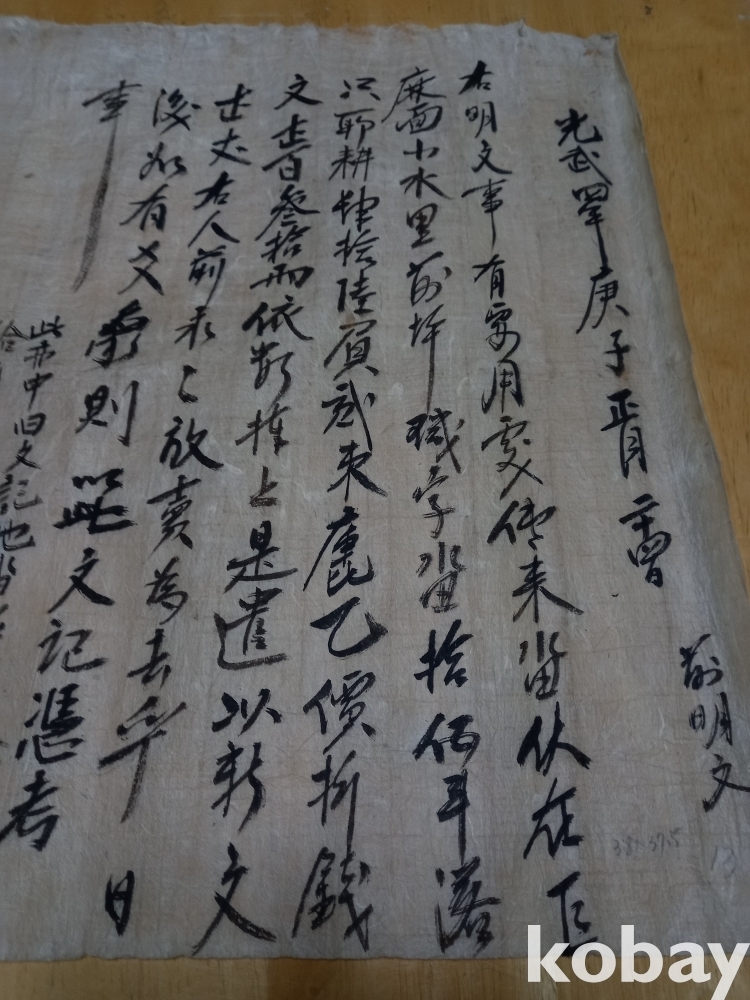 光武四年庚子正月二十四日 前明文
右明文事有要用處傳來畓伏在巨
麻面小水里前坪職字畓拾伍斗落
只耶耕肆拾陸負貳束乙價折錢
文壹百叁拾兩依數捧上是遣以新文
壹丈右人前永〻放賣爲去乎日
後如有爻象則以此文記憑考
事
此畓中旧文記也
kobay